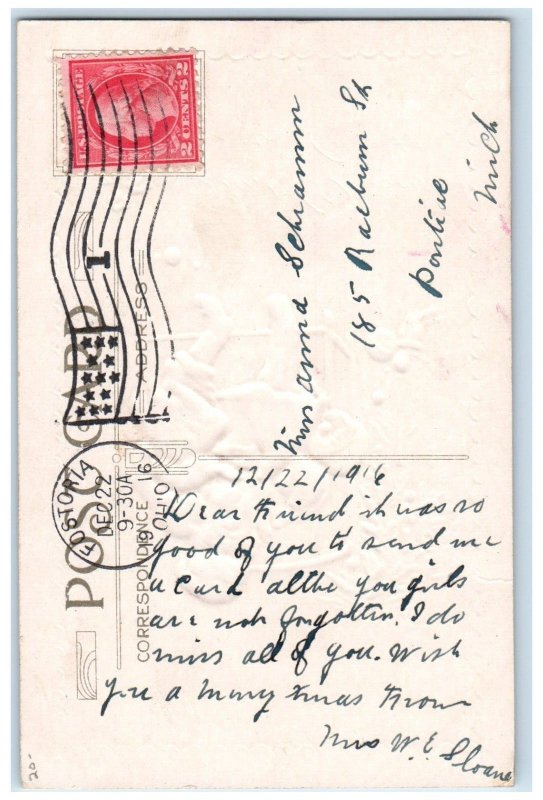 U.S. POSTAGE
2 CENTS 2
1
FOSTORIA
DEC 22
9-30A
1916
OHIO
POST CARD
ADDRESS
CORRESPONDENCE
Miss Anna Schramm
185 Raeburn St
Pontiac
Mich
12/22/1916
Dear Friend it was so
good of you to send me
a card altho you girls
are not forgotten. I do
miss all of you. Wish
you a Merry Xmas From
Mrs W. E. Sloane
20-